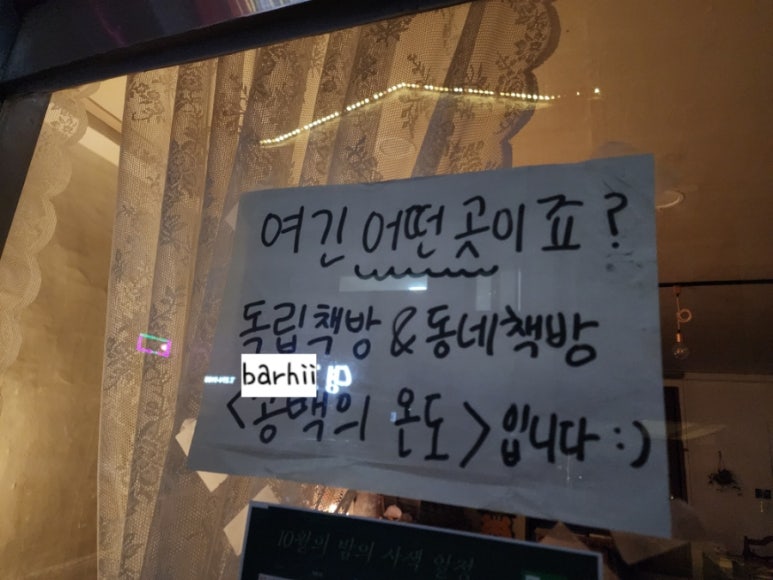 여긴 어떤 곳이죠?
독립책방 & 동네책방
barhii
<공백의 온도>입니다 :)
10월의 밤의 사색 일정